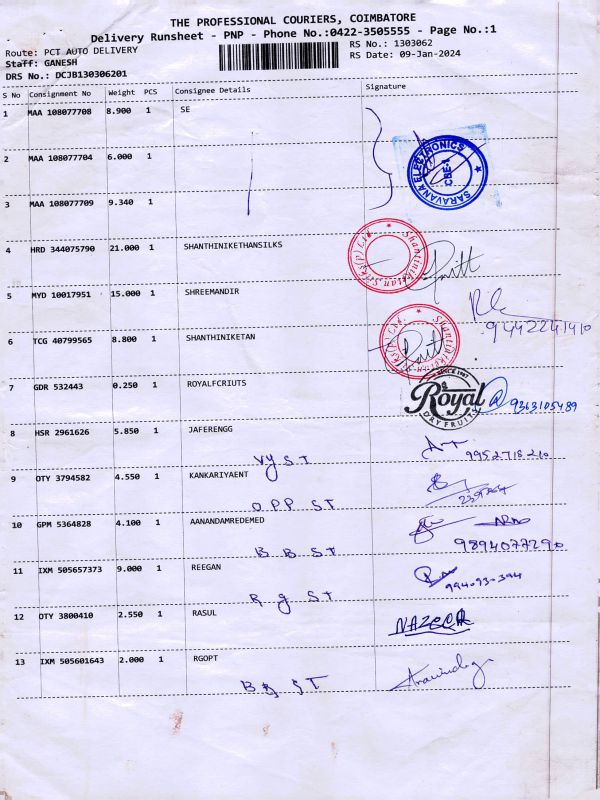 THE PROFESSIONAL COURIERS, COIMBATORE
Delivery Runsheet - PNP - Phone No.:0422-3505555 - Page No.:1
Route: PCT AUTO DELIVERY
RS No.: 1303062
Staff: GANESH
RS Date: 09-Jan-2024
DRS No.: DCJB130306201
S No Consignment No Weight PCS Consignee Details Signature
1 MAA 108077708 8.900 1 SE
2 MAA 108077704 6.000 1
SARAVANA ELECTRONICS
CBE-1
3 MAA 108077709 9.340 1
4 HRD 344075790 21.000 1 SHANTHINIKETHANSILKS
Shantiniketan Silks(P) Ltd.
5 MYD 10017951 15.000 1 SHREEMANDIR
9442241410
6 TCG 40799565 8.800 1 SHANTHINIKETAN
7 GDR 532443 0.250 1 ROYALFCRIUTS
SINCE 1967
Royal
DRY FRUITS
9363105489
8 HSR 2961626 5.850 1 JAFERENGG
VYST
9952718210
9 OTY 3794582 4.550 1 KANKARIYAENT
OPP ST
10 GPM 5364828 4.100 1 AANANDAMREDEMED
BBST
9894077290
11 IXM 505657373 9.000 1 REEGAN
RgST
12 OTY 3800410 2.550 1 RASUL
NAZEER
13 IXM 505601643 2.000 1 RGOPT
BBST